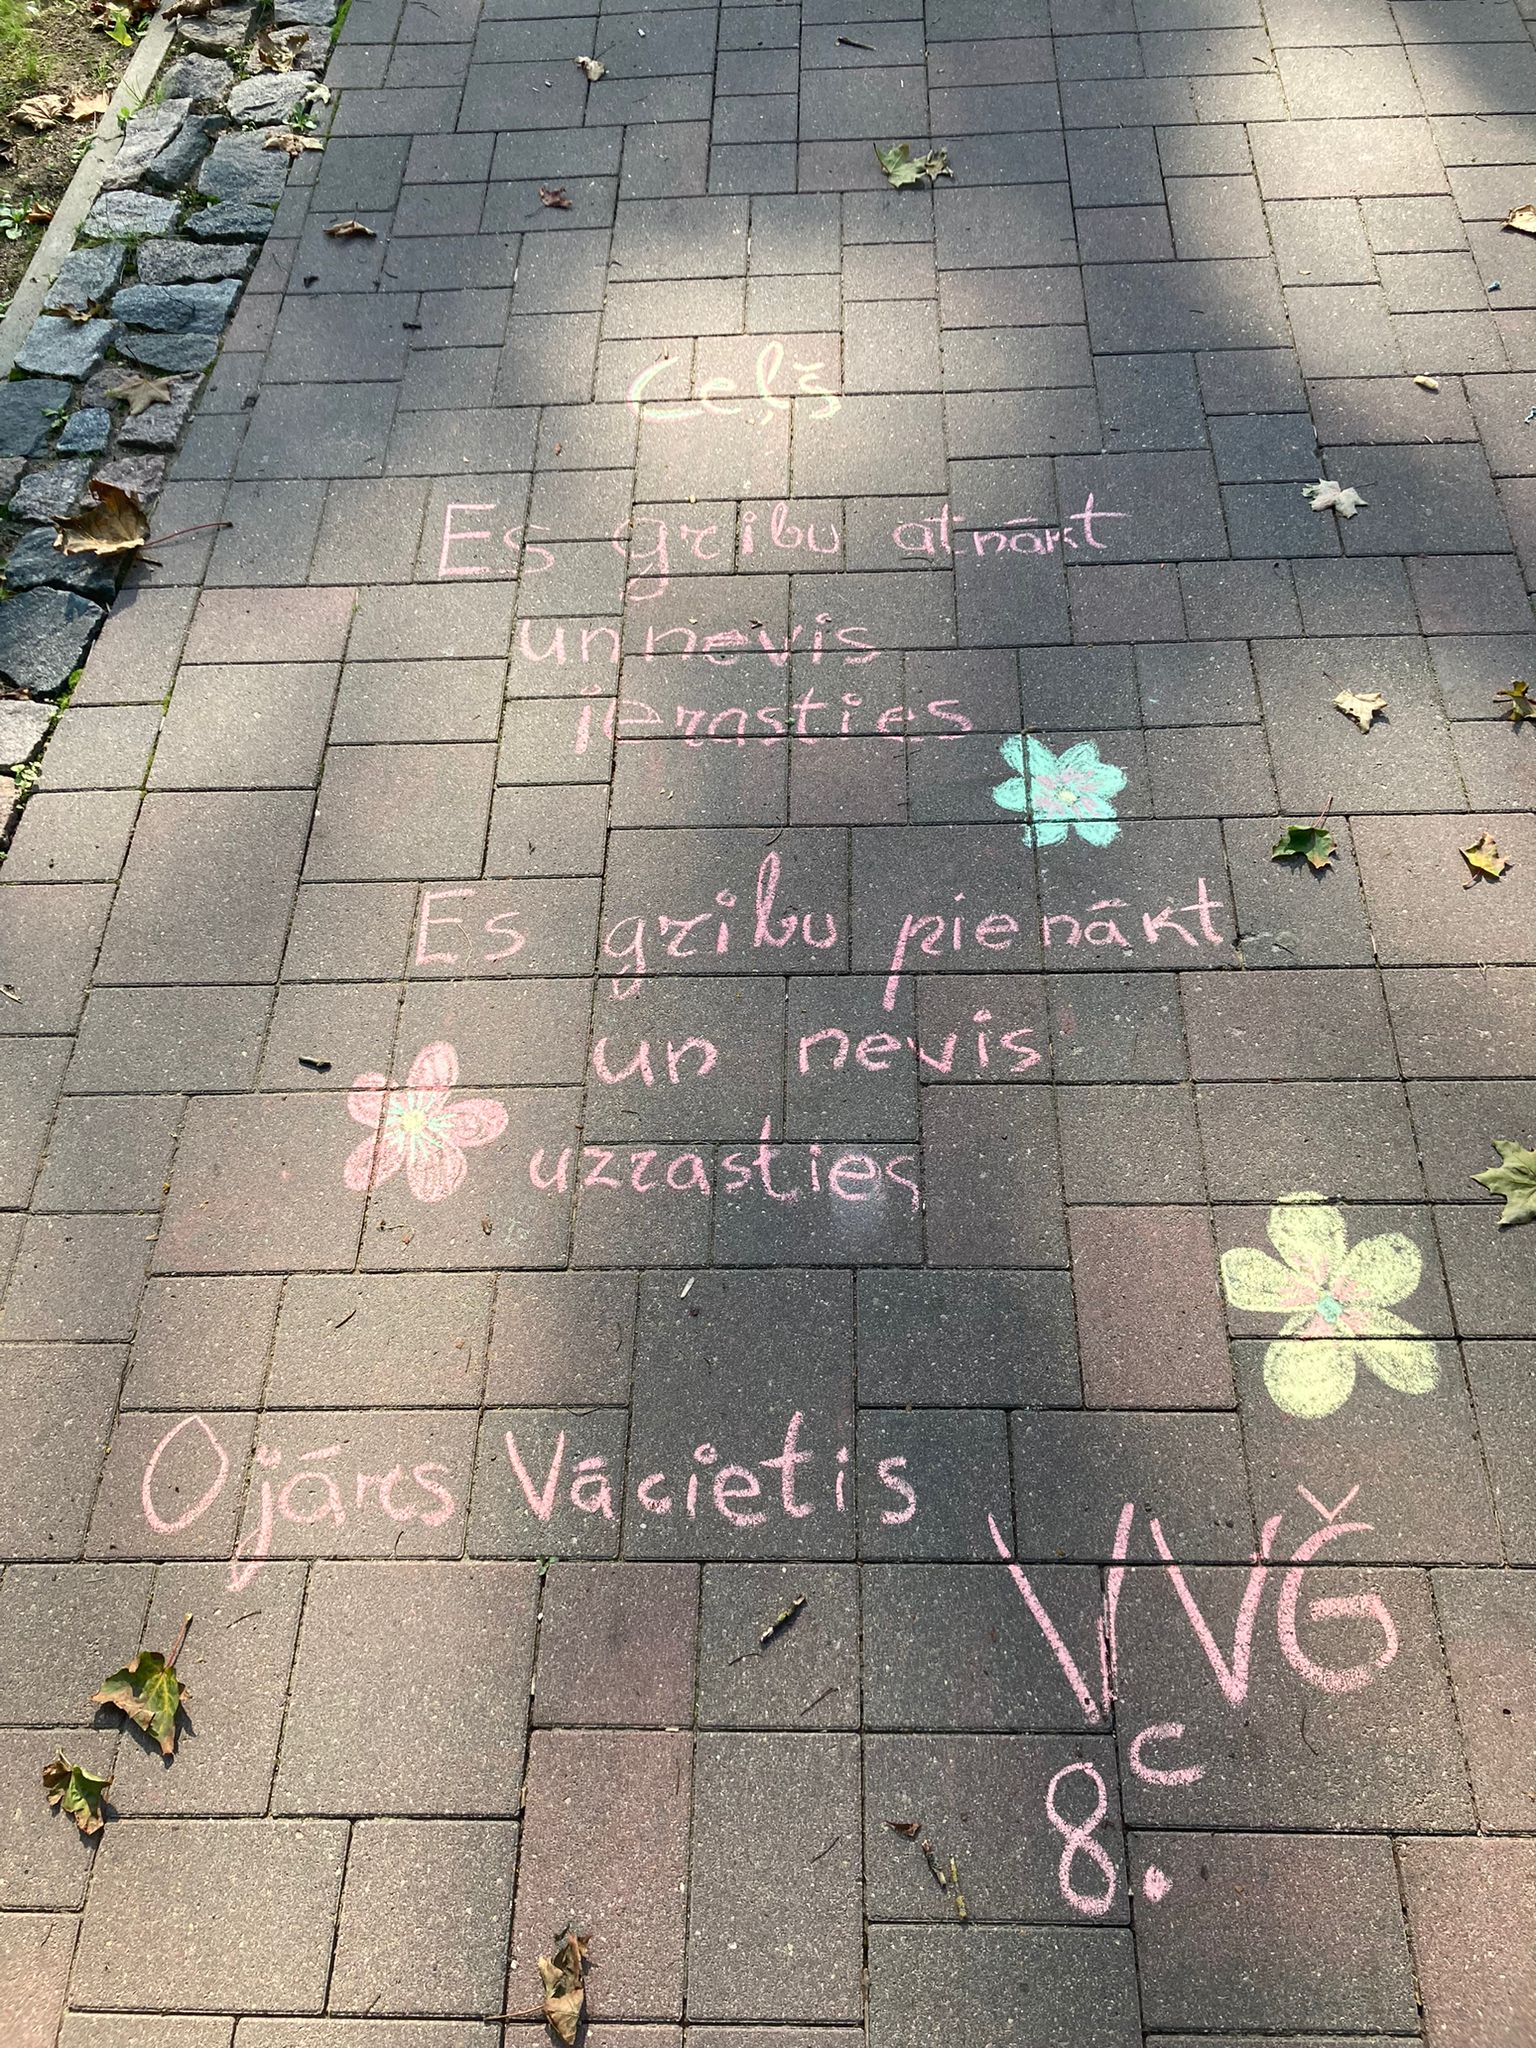 Ceļš
Es gribu atnākt
un nevis
ierasties
Es gribu pienākt
un nevis
uzrasties
Ojārs Vācietis
VVĞ
8.c